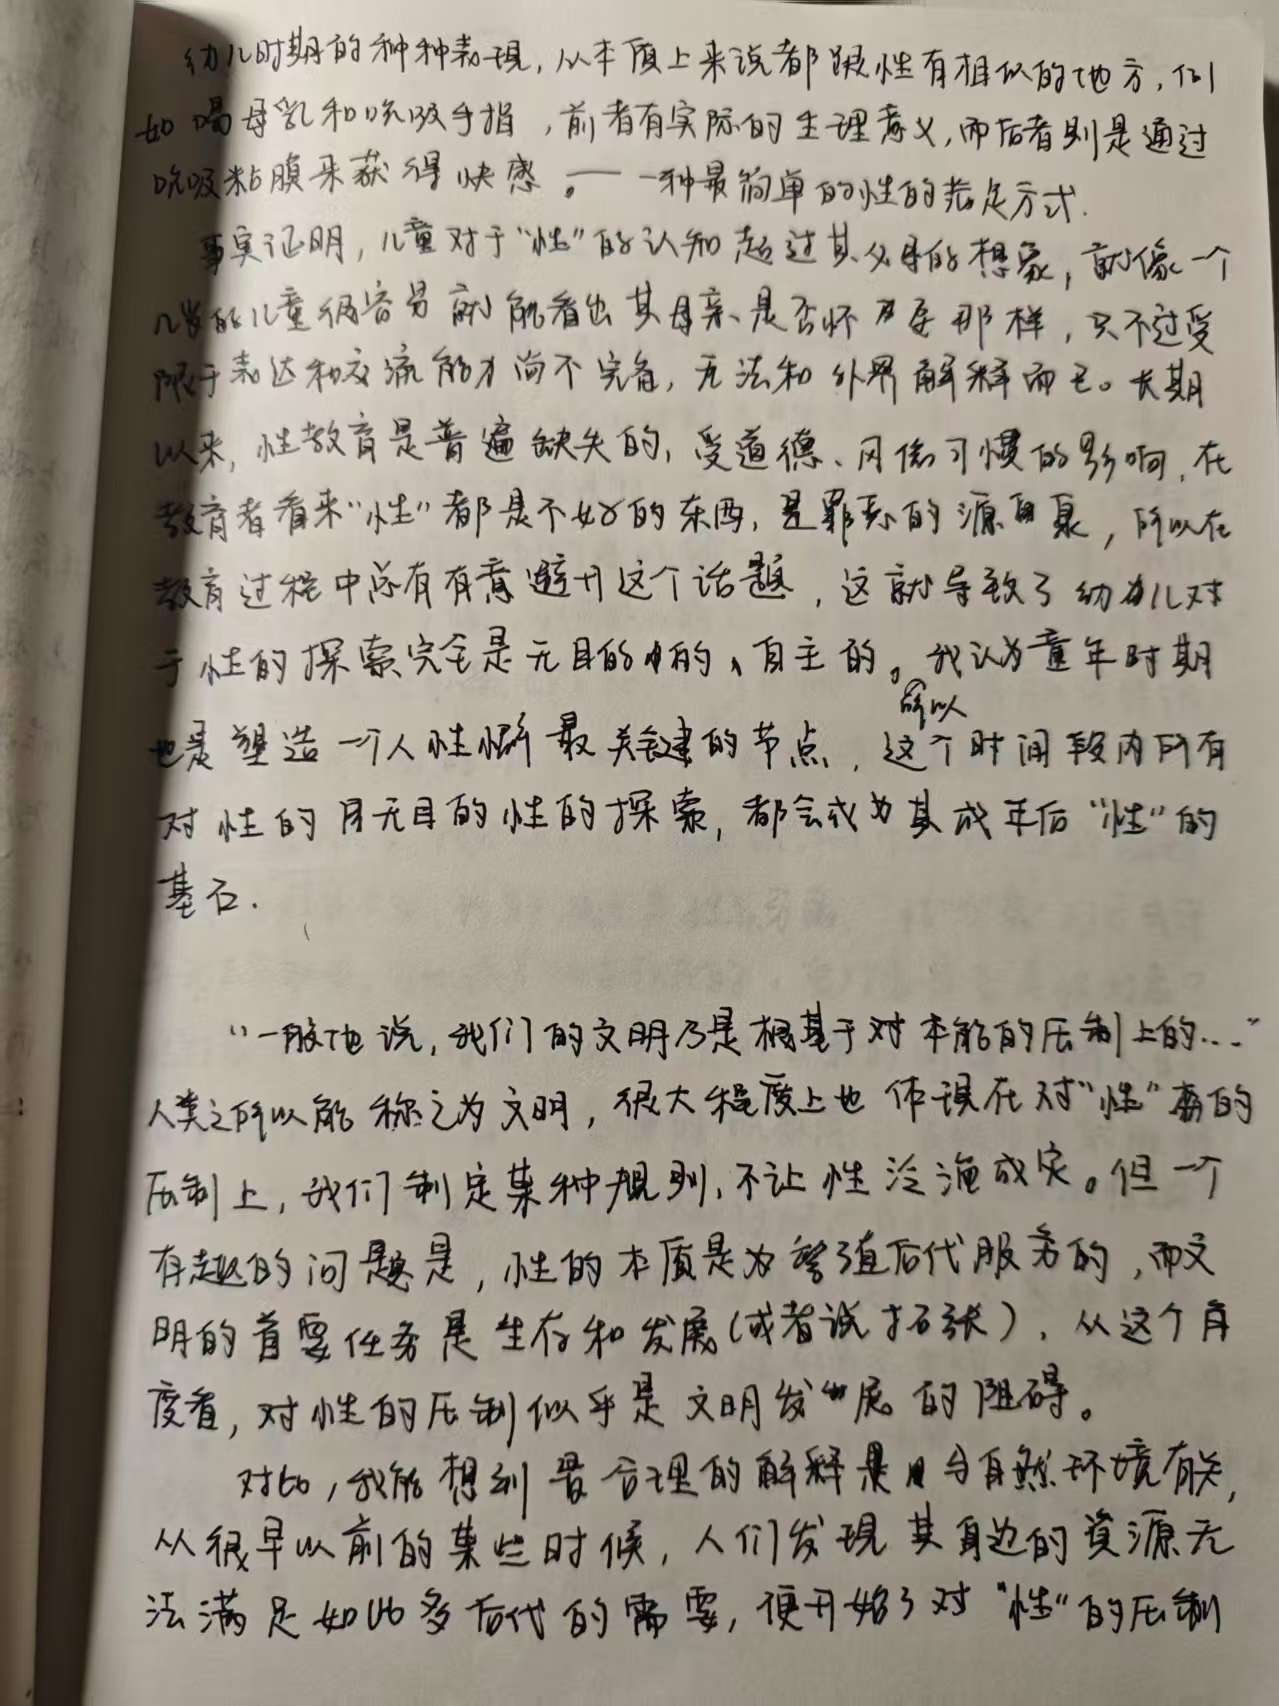 幼儿时期的种种表现，从本质上来说都跟性有相似的地方，例
如喝母乳和吮吸手指，前者有实际的生理意义，而后者则是通过
吮吸粘膜来获得快感。——一种最简单的性的满足方式.
事实证明，儿童对于“性”的认知超过其父母的想象，就像一个
几岁的儿童很容易就能看出其母亲是否怀孕那样，只不过受
限于表达和交流能力尚不完备，无法和外界解释而已。长期
以来，性教育是普遍缺失的，受道德、风俗习惯的影响，在
教育者看来“性”都是不好的东西，是罪恶的源泉，所以在
教育过程中总有有意避开这个话题，这就导致了幼儿对
于性的探索完全是无目的的、自主的。我认为童年时期
也是塑造一个人性癖最关键的节点，所以这个时间段内所有
对性的无目的性的探索，都会成为其成年后“性”的
基石.
“一般地说，我们的文明乃是根基于对本能的压制上的...”
人类之所以能称之为文明，很大程度上也体现在对“性”的
压制上，我们制定某种规则，不让性泛滥成灾。但一个
有趣的问题是，性的本质是为繁殖后代服务的，而文
明的首要任务是生存和发展(或者说扩张)，从这个角
度看，对性的压制似乎是文明发展的阻碍。
对此，我能想到最合理的解释是与自然环境有关，
从很早以前的某些时候，人们发现其身边的资源无
法满足如此多后代的需要，便开始了对“性”的压制